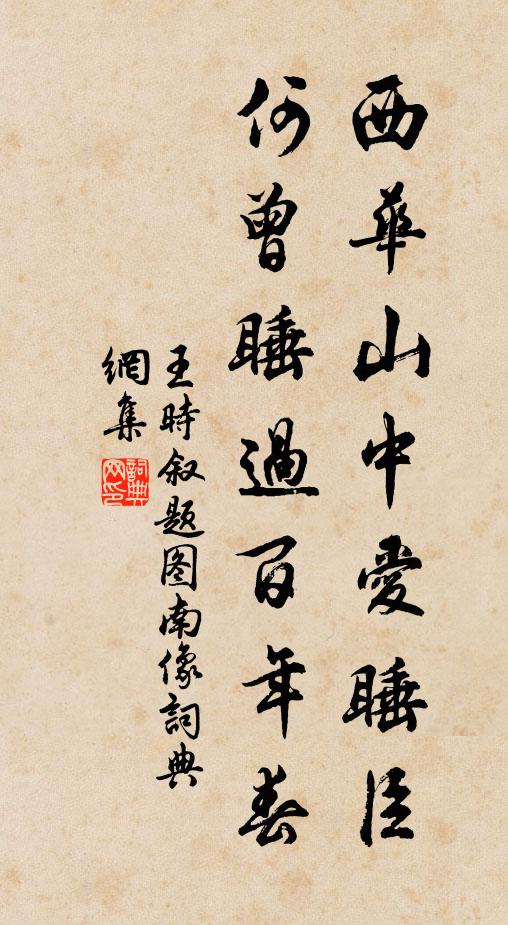 西華山中愛睡臣
何曾睡過百年春
王時叙题图南像詞典
網集
詞典
网印